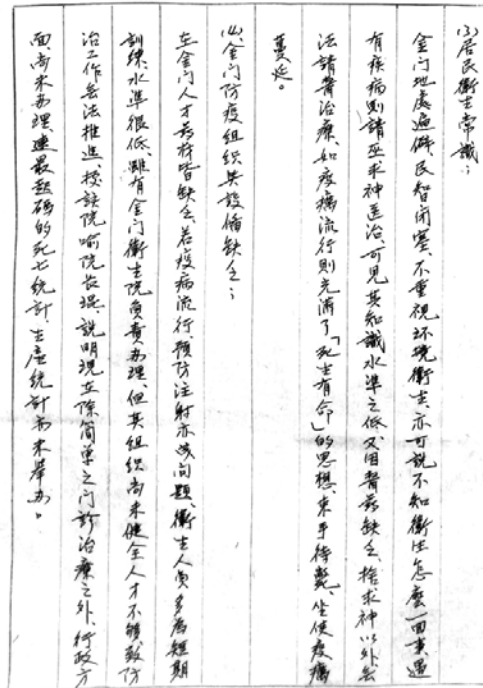 (3)居民衞生常識：
金门地處遍僻、民智闭塞、不重視环境衞生、亦可說不知衞生怎麽一回事遇
有疾病則請巫求神医治、可見其知識水準之低又因醫葯缺乏、捨求神以外無
法請醫治療、如疫癘流行則充滿了「死生有命」的思想、束手待斃、坐使疫癘
蔓延。
(4)金门防疫组织與設俻缺乏：
在金门人才葯材皆缺乏、若疫病流行预防注射亦成问题、衞生人員多爲短期
訓練、水準很低、雖有金门衞生院負責办理、但其组织尚未健全人才不夠、致防
治工作無法推進、據該院喻院長琨、説明現在除简单之门診治療之外、行政方
面、尚未办理、連最起碼的死亡統計、生產統計亦未舉办。